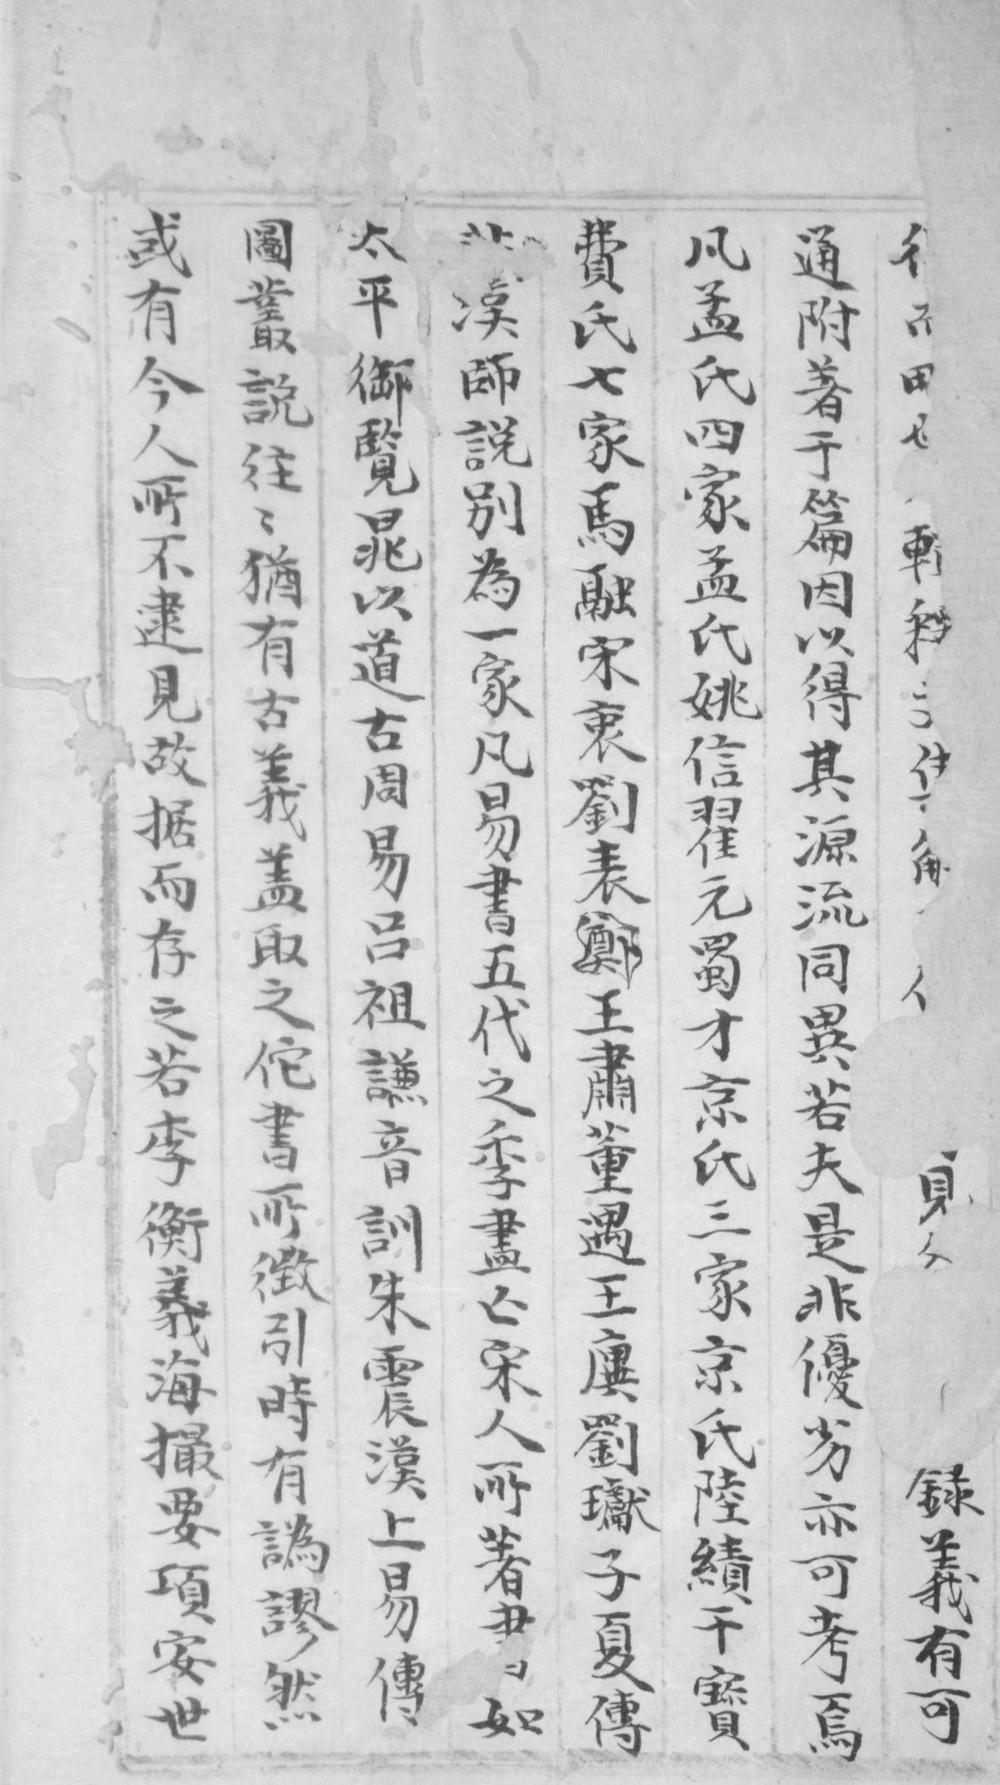 録義有可
通附著于篇因以得其源流同異若夫是非優劣亦可考焉
凡孟氏四家孟氏姚信翟元蜀才京氏三家京氏陸績干寶
費氏七家馬融宋衷劉表鄭王肅董遇王廙劉瓛子夏傳
漢師説别為一家凡易書五代之季盡亡宋人所著書如
太平御覽晁以道古周易吕祖謙音訓朱震漢上易傳
圖叢説往〻猶有古義蓋取之佗書所徴引時有譌謬然
或有今人所不逮見故据而存之若李衡義海撮要項安世